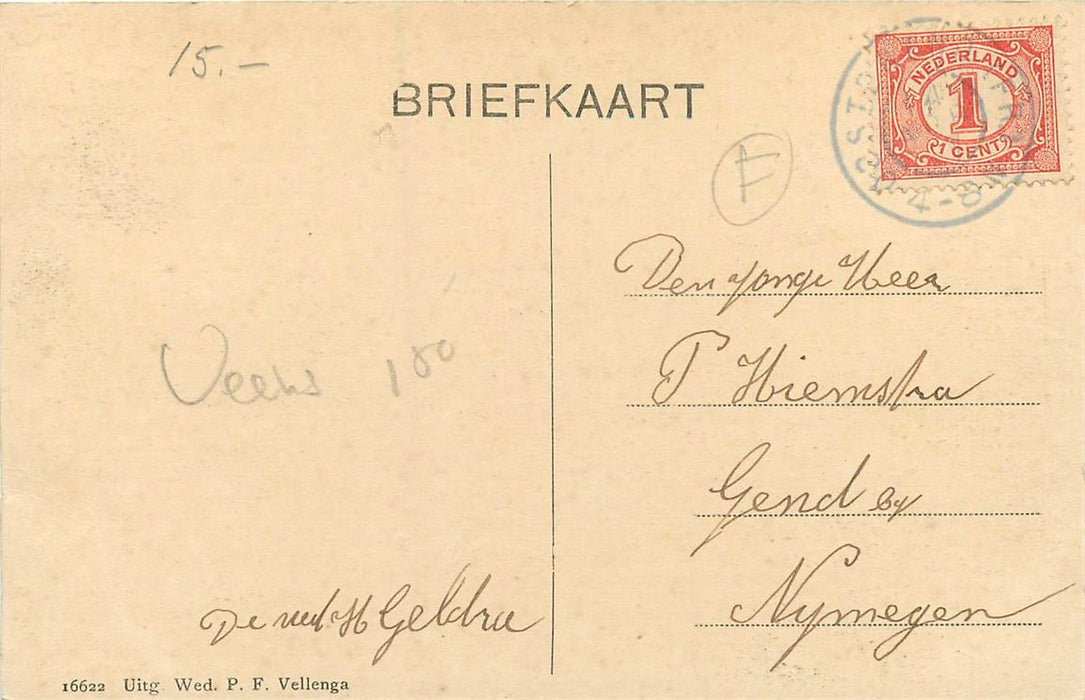 15.-
BRIEFKAART
NEDERLAND
1
1 CENT
4-8 N
F
Den Jonge Heer
P Hiemstra
Gend by
Nymegen
Veens 180
Geldra
16622 Uitg. Wed. P. F. Vellenga